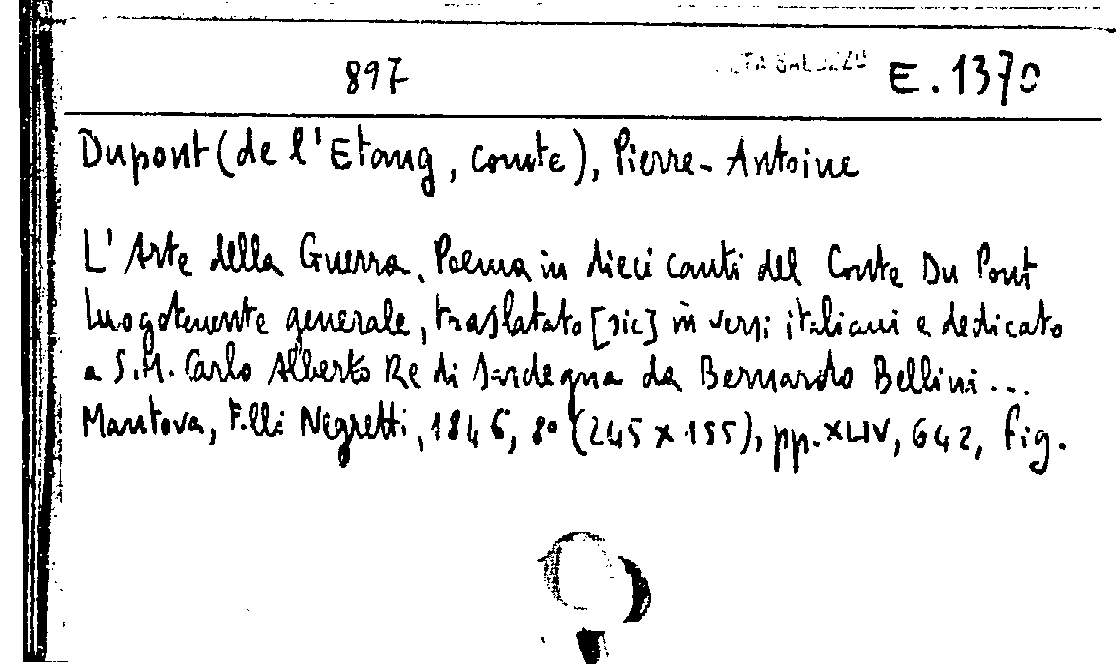 897 E.1370
Dupont (de l'Etang, comte), Pierre-Antoine
L'Arte della Guerra. Poema in dieci canti del Conte Du Pont
luogotenente generale, traslatato [sic] in versi italiani e dedicato
a S.M. Carlo Alberto Re di Sardegna da Bernardo Bellini...
Mantova, F.lli Negretti, 1846, 8° (245 x 155), pp. XLIV, 642, fig.